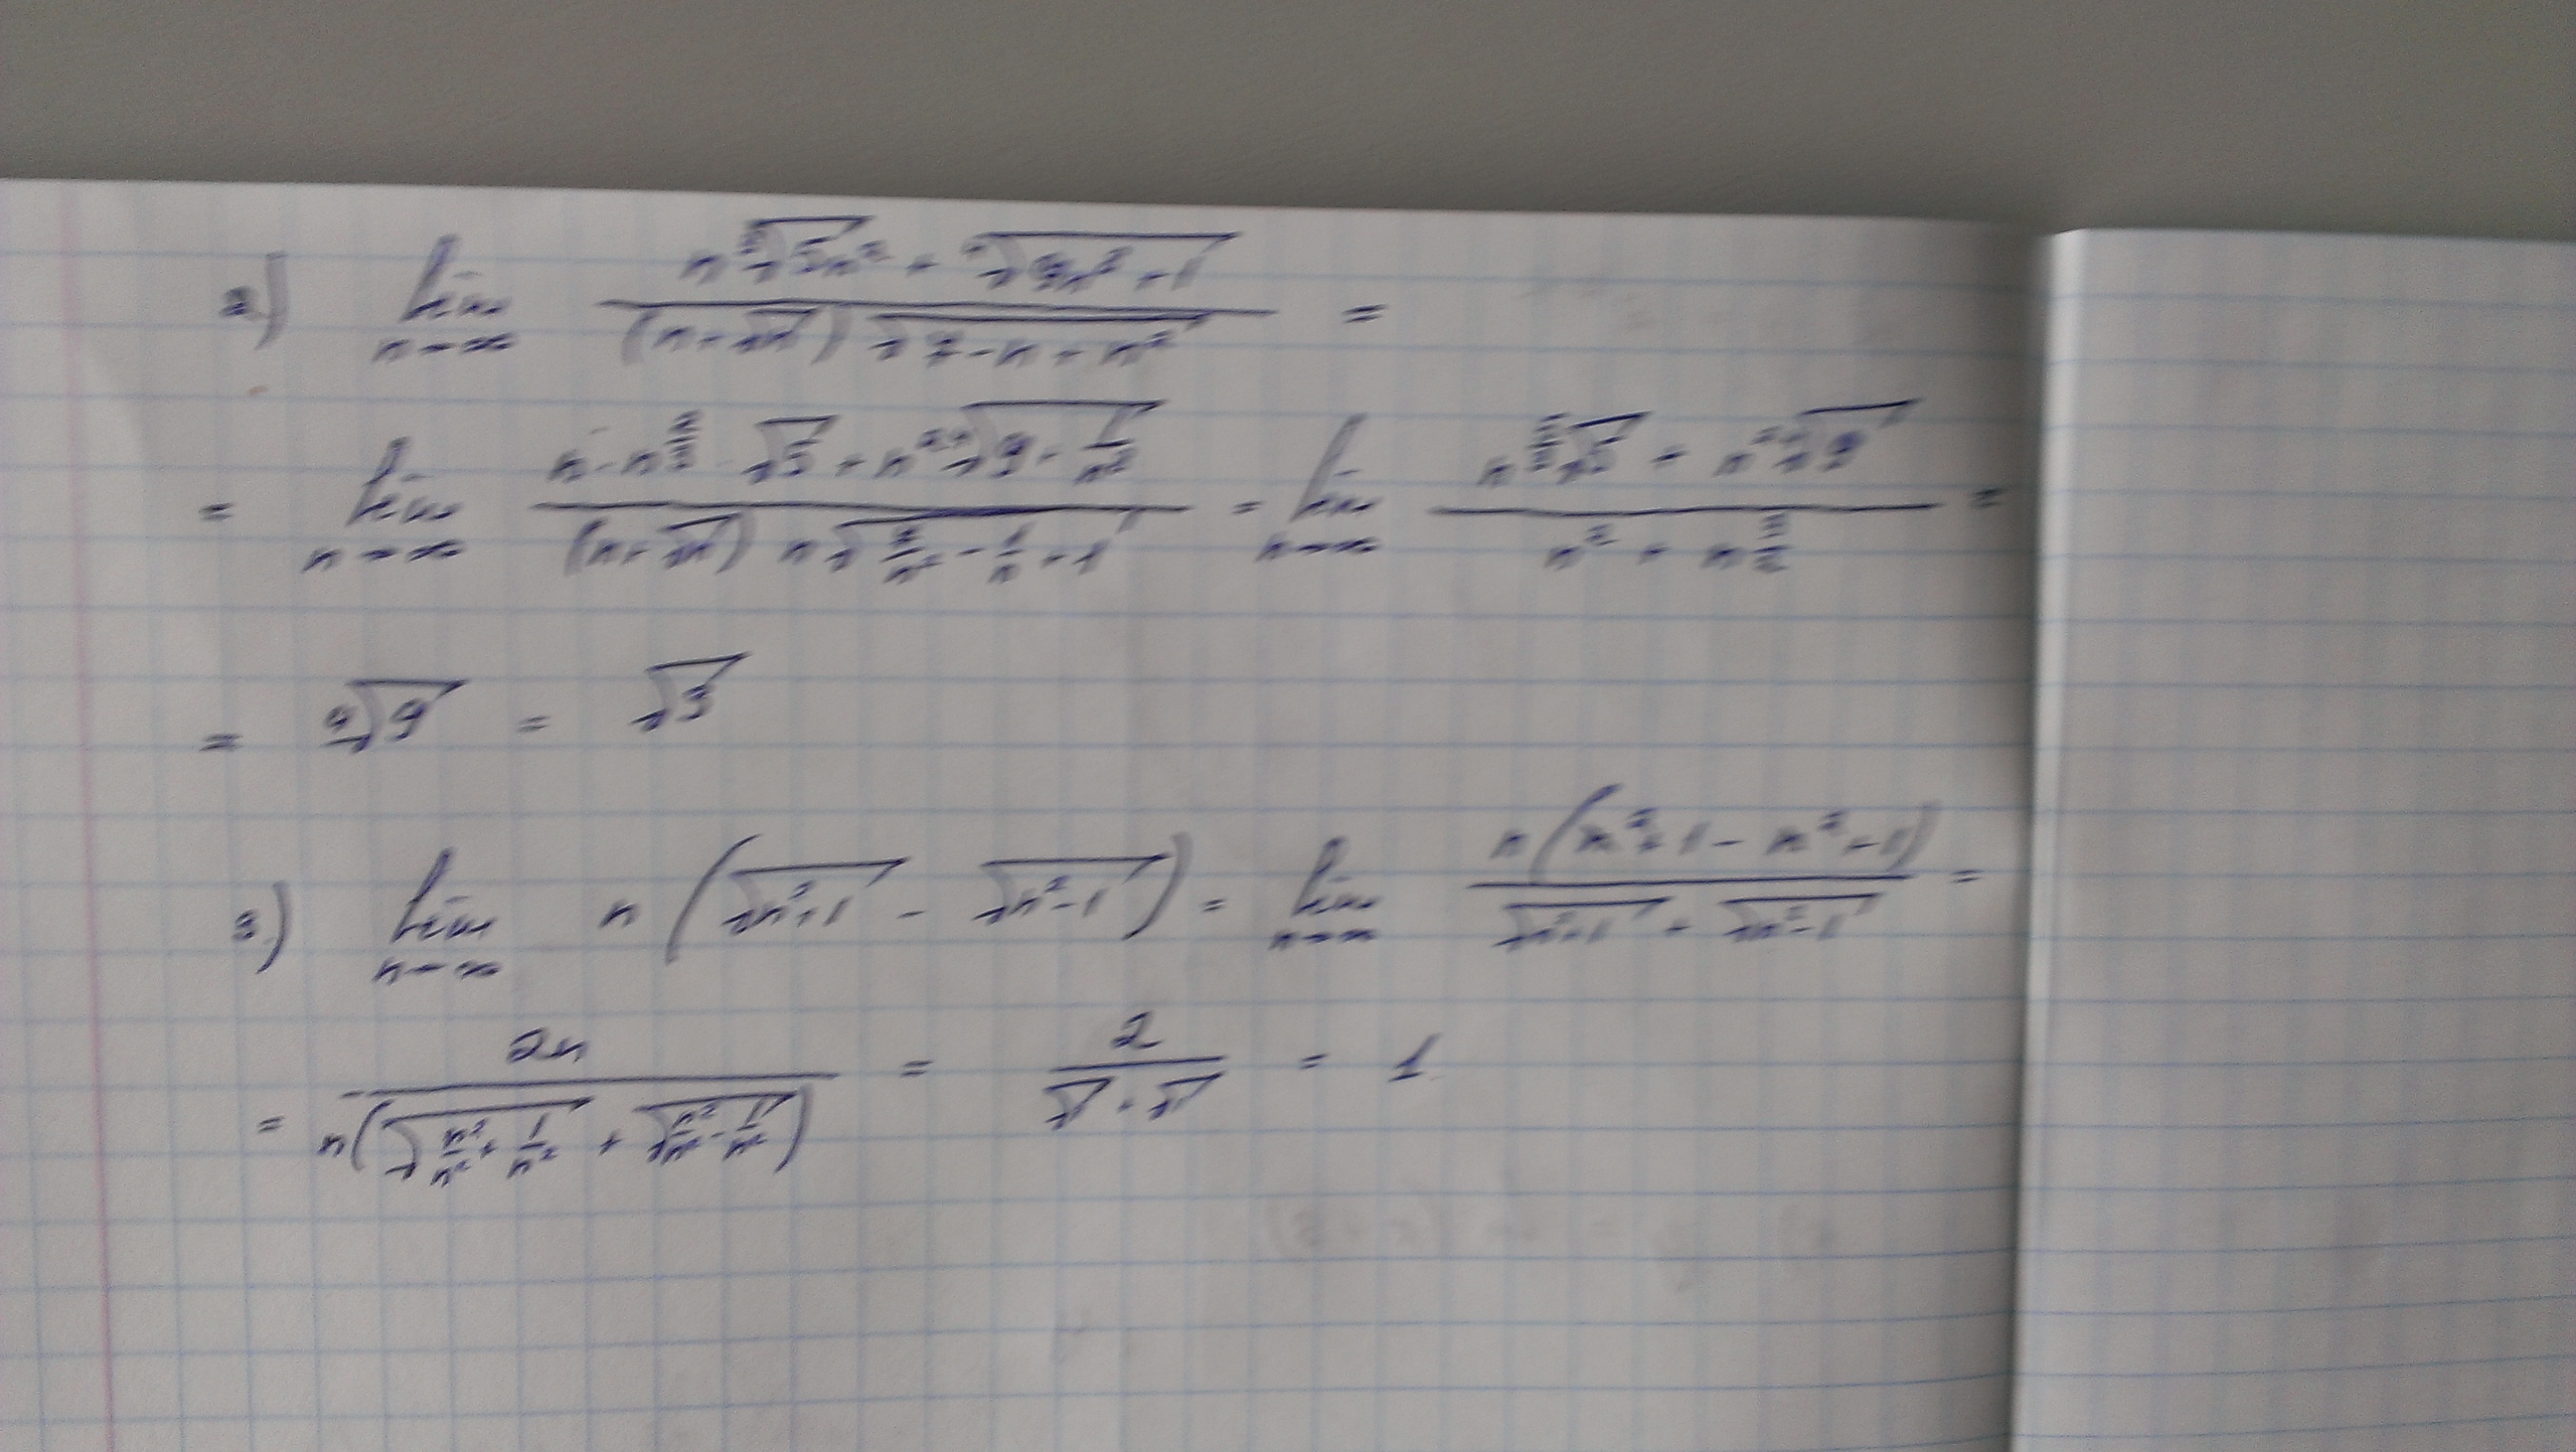 2.) lim n→∞ (n ∛(5n²) + ⁴√(9n⁸+1)) / ((n+√n) √(7-n+n²)) =
= lim n→∞ (n·n^(2/3)·∛5 + n² ⁴√(9+1/n⁸)) / ((n+√n) n √(7/n² - 1/n + 1)) = lim n→∞ (n^(5/3) ∛5 + n² ⁴√9) / (n² + n^(3/2)) =
= ⁴√9 = √3
3.) lim n→∞ n (√(n²+1) - √(n²-1)) = lim n→∞ n(n²+1-n²+1) / (√(n²+1) + √(n²-1)) =
= 2n / (n(√(n²/n² + 1/n²) + √(n²/n² - 1/n²))) = 2 / (√1 + √1) = 1